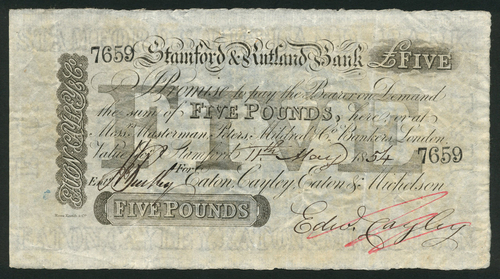 7659 Stamford & Rutland Bank £FIVE
I Promise to pay the Bearer on Demand
the sum of FIVE POUNDS, here or at
Mess.rs Masterman, Peters, Mildred & Co. Bankers, London.
Value rec'd Stamford 11th May 1854 7659
For
Ent.d Eaton, Cayley, Eaton & Michelson
FIVE POUNDS
Edwd. Cayley
FIVE